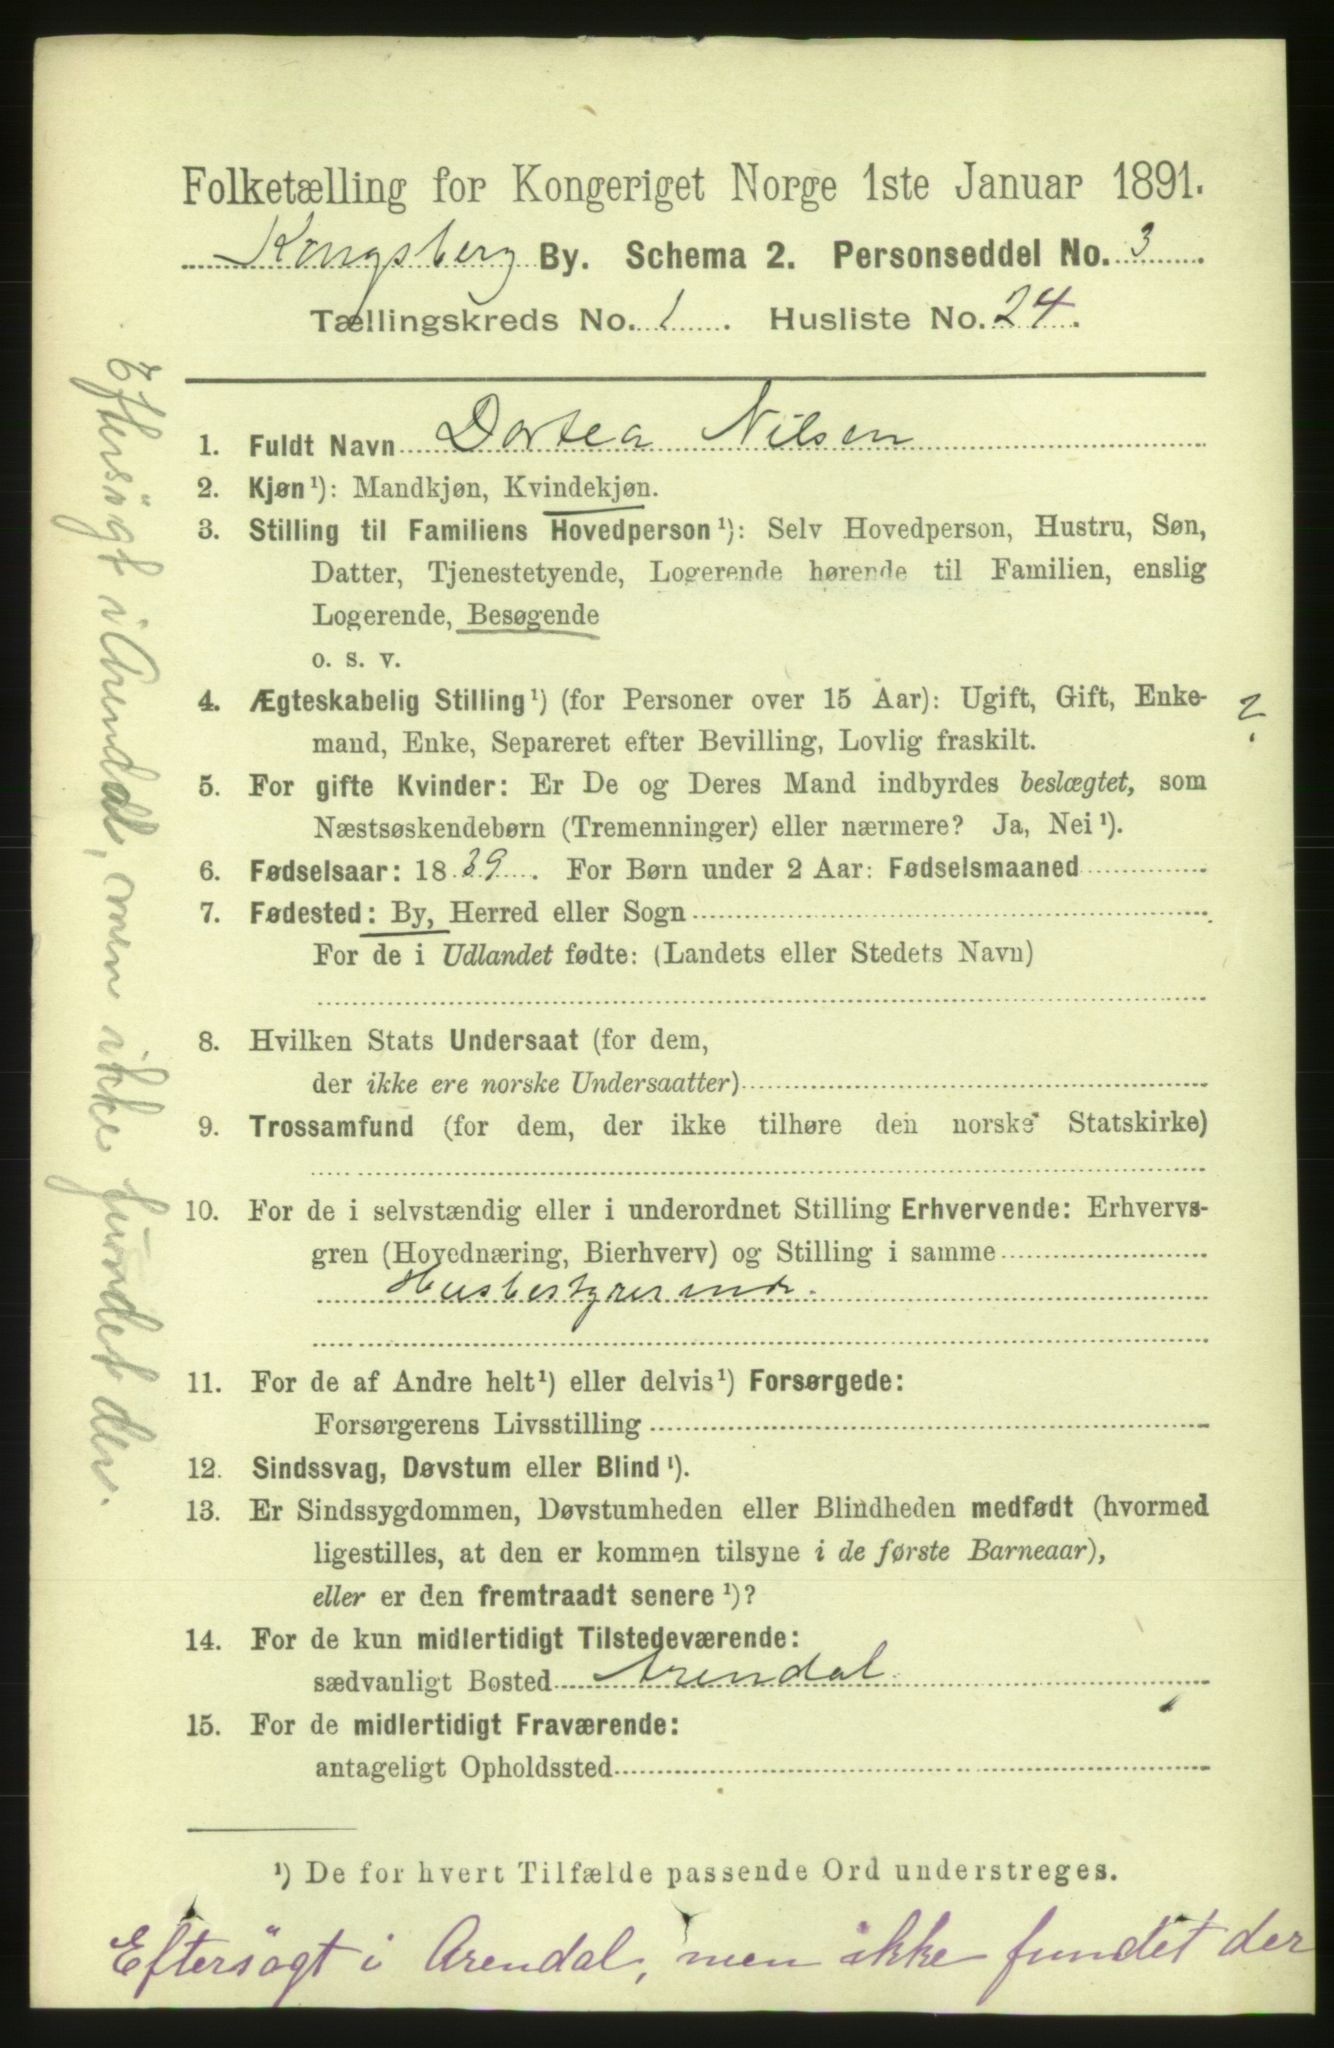 Folketælling for Kongeriget Norge 1ste Januar 1891.
Kongsberg By. Schema 2. Personseddel No. 3.
Tællingskreds No. 1. Husliste No. 24.
1. Fuldt Navn Dortea Nilsen
2. Kjøn¹): Mandkjøn, Kvindekjøn.
3. Stilling til Familiens Hovedperson¹): Selv Hovedperson, Hustru, Søn,
Datter, Tjenestetyende, Logerende hørende til Familien, enslig
Logerende, Besøgende
o. s. v.
4. Ægteskabelig Stilling¹) (for Personer over 15 Aar): Ugift, Gift, Enke- ?
mand, Enke, Separeret efter Bevilling, Lovlig fraskilt.
5. For gifte Kvinder: Er De og Deres Mand indbyrdes beslægtet, som
Næstsøskendebørn (Tremenninger) eller nærmere? Ja, Nei¹).
6. Fødselsaar: 1839. For Børn under 2 Aar: Fødselsmaaned
7. Fødested: By, Herred eller Sogn
For de i Udlandet fødte: (Landets eller Stedets Navn)
8. Hvilken Stats Undersaat (for dem,
der ikke ere norske Undersaatter)
9. Trossamfund (for dem, der ikke tilhøre den norske Statskirke)
10. For de i selvstændig eller i underordnet Stilling Erhvervende: Erhvervs-
gren (Hovednæring, Bierhverv) og Stilling i samme
Husbestyrerinde.
11. For de af Andre helt¹) eller delvis¹) Forsørgede:
Forsørgerens Livsstilling
12. Sindssvag, Døvstum eller Blind¹).
13. Er Sindssygdommen, Døvstumheden eller Blindheden medfødt (hvormed
ligestilles, at den er kommen tilsyne i de første Barneaar),
eller er den fremtraadt senere¹)?
14. For de kun midlertidigt Tilstedeværende:
sædvanligt Bosted Arendal.
15. For de midlertidigt Fraværende:
antageligt Opholdssted
¹) De for hvert Tilfælde passende Ord understreges.
Eftersögt i Arendal, men ikke fundet der
Eftersögt i Arendal, men ikke fundet der.